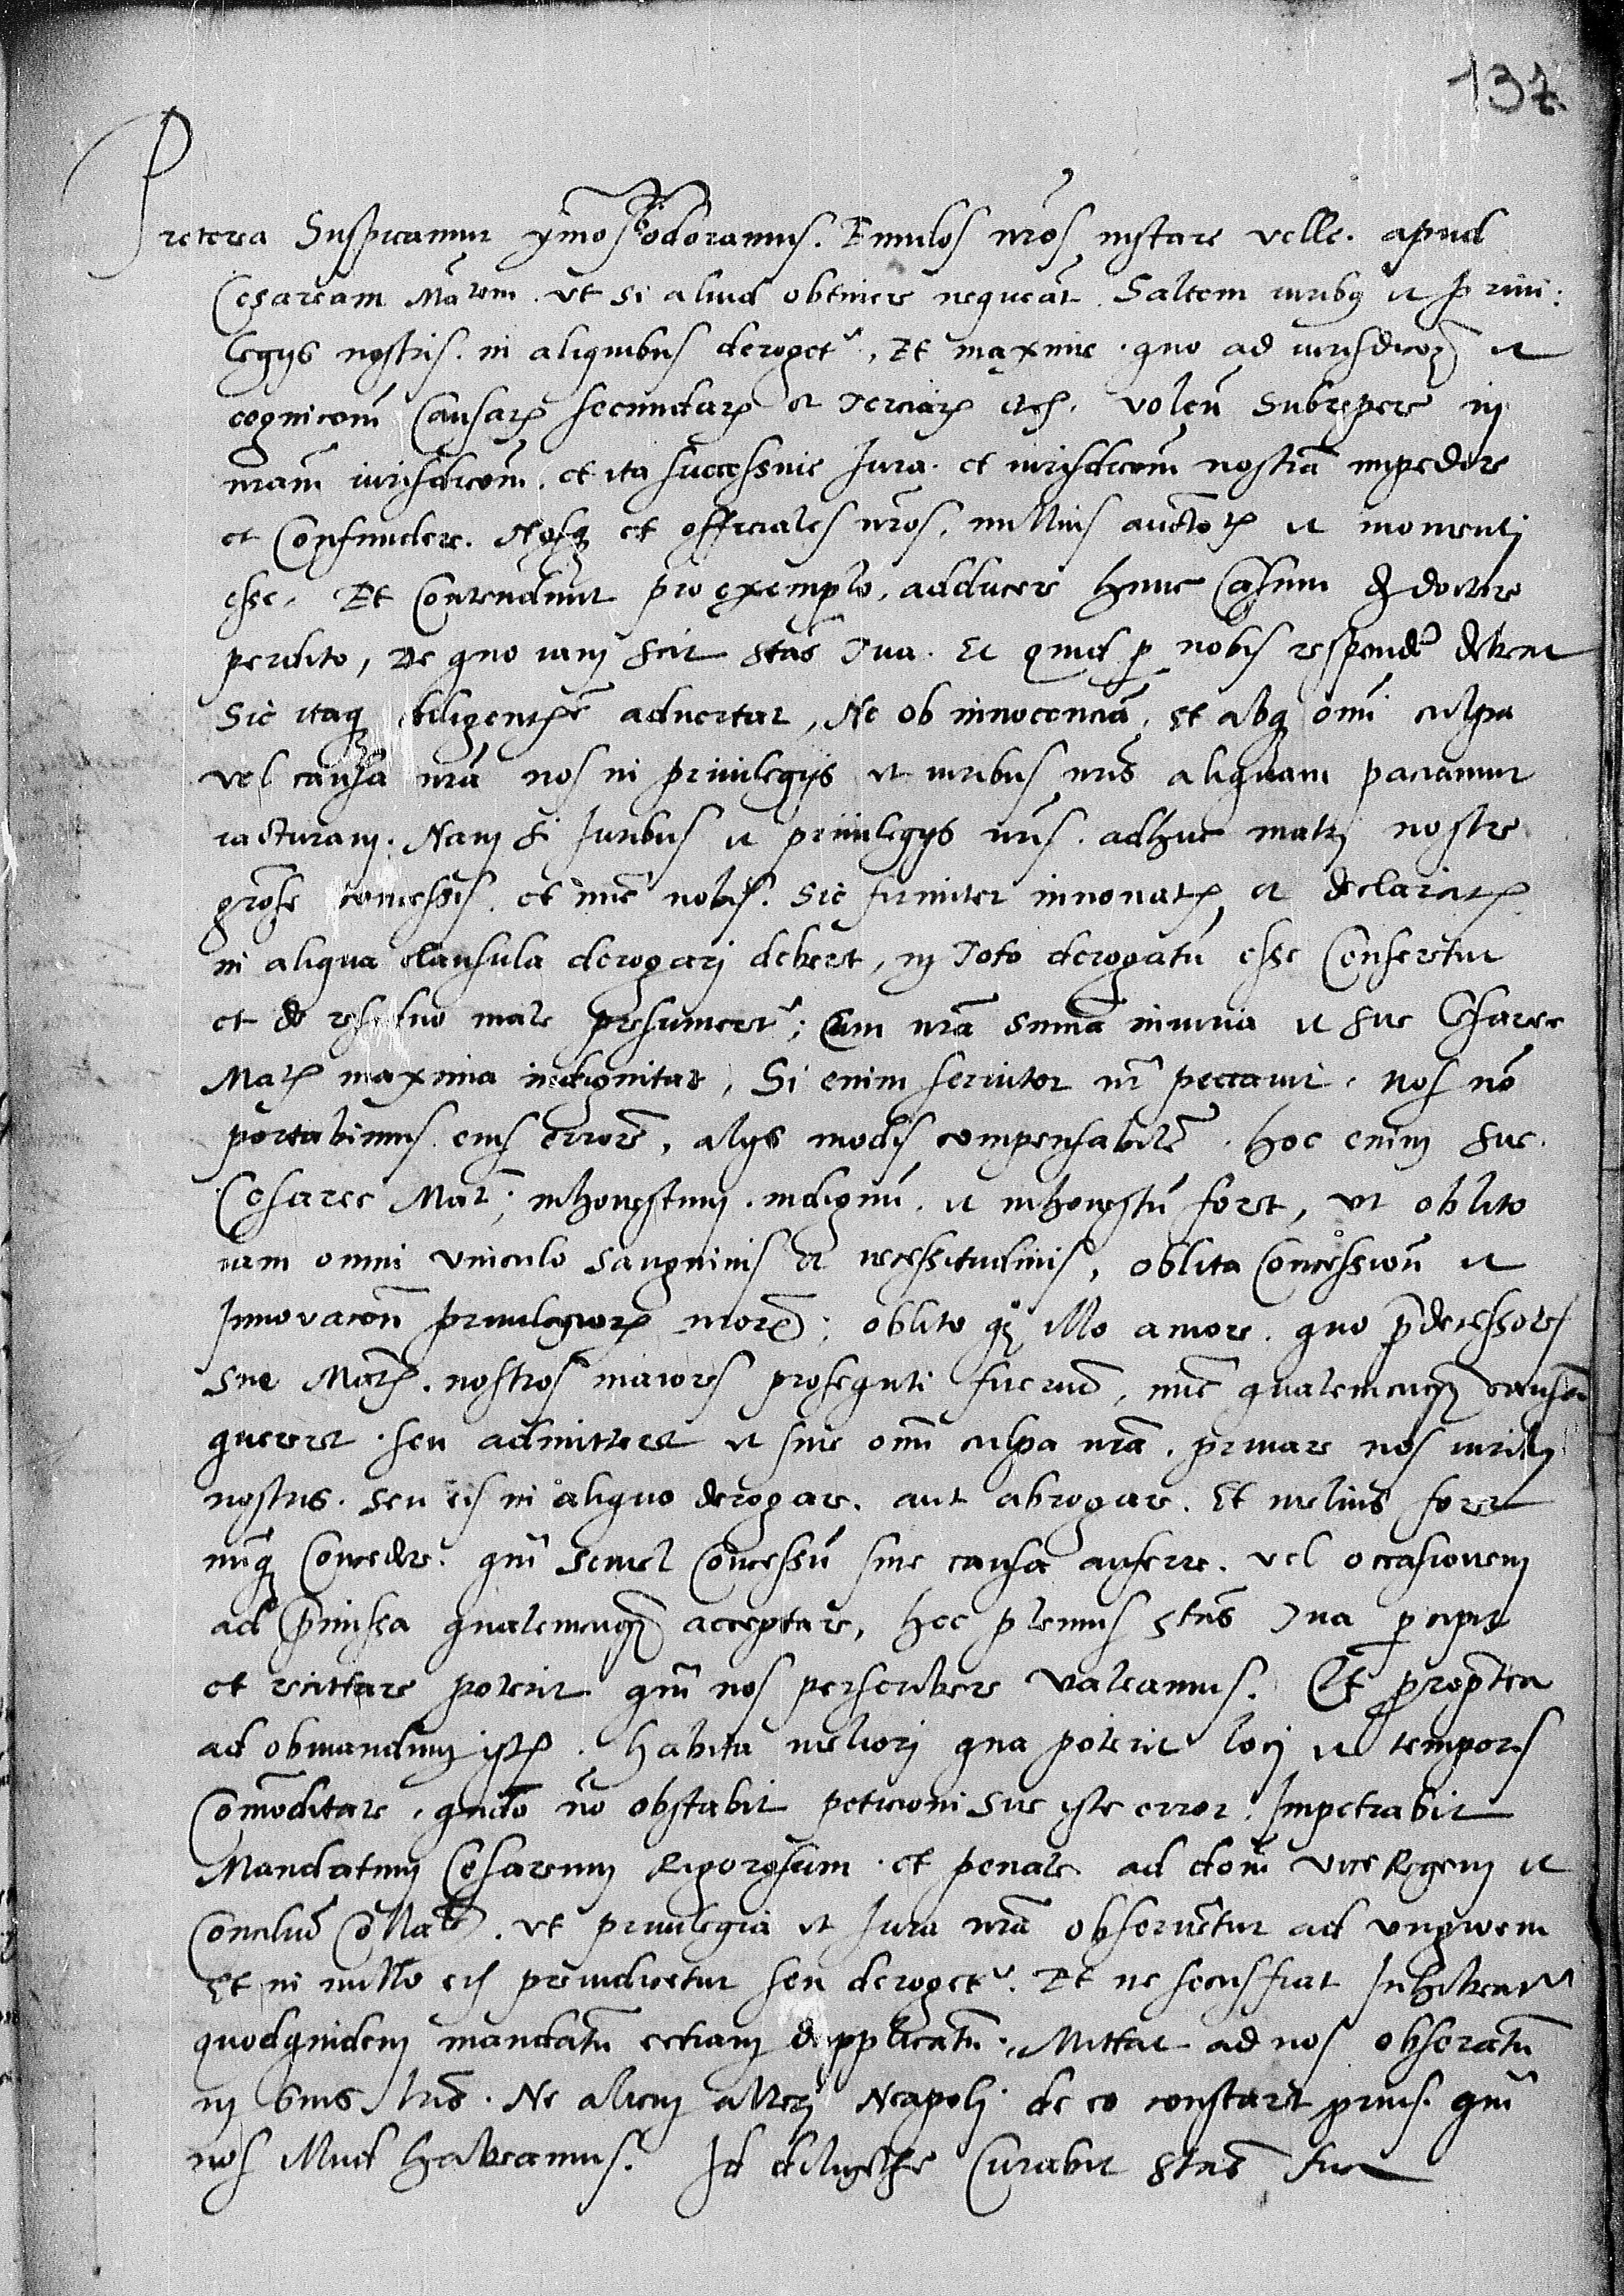 137
Preterea Suspicamur ymo Subodoramus. Emulos nr̃os instare velle. apud
Cesaream Ma.tem vt si aliud obtinere nequeāt. Saltem iuribꝫ et priui:
legijs nostris. in aliquibus deroget.r, Et maxime. quo ad iurisdicõꝫ et
cognicom̃ Causarꝫ secundarꝫ et Terciarꝫ etc. volen̄ Subrepere in
nram̃ iurisdicom̃. et ita successiue Iura. et iurisdicom̃ nostrā impedire
et Confundere. Nosqꝫ et officiales nr̃os, nullius auctortꝭ et momenti
esse. Et Contendunt pro exemplo, adducere hunc Casum de doctore
perdito, De quo iam scit Stas̃ Tua. Et quid pro nobis responder̃ debeat
Sic itaqꝫ diligenter aduertat, Ne ob innocenciā, et absqꝫ omi culpa
vel causa nrã nos in priuilegijs et iuribus nris̃ aliquam paciamur
iacturam. Nam si Iuribus et priuilegijs nris̃. adhuc matrj nostre
gr̃ose concessis. et nunc nobis. Sic firmiter innouatꝭ et declaratꝭ
in aliqua clausula derogarj deberet, in Toto derogatū esse Censeretur
et de residuo male presumeret.r; Cum nrã summa iniuria et sue Cesaree
Matꝭ maxima indignitate, Si enim seruitor nr̃ peccauit. nos nō
portabimus eius errorē, alijs modis compensabilē. Hoc enim sue.
Cesaree Mat.; inhonestum. indignū. et inhonestū foret, vt oblito
iam omni vinculo sanguinis et necessitudinis, oblita Concessiom̃ et
Innovacom̃ priuilegiorꝫ nrorꝫ; oblito qꝫ illo amore. quo p̄decessores
sue Matꝭ. nostros maiores prosequti fuerunt, nunc qualemcunqꝫ causam
quereret. seu admitteret et sine omi culpa nrã. priuare nos iuribus
nostris. seu eis in aliquo derogare. aut abrogare. Et melius foret
nunqꝫ Concedere. qm̃ Semel Concessū sine causa auferre. vel occasionem
ad p̄missa qualemcunqꝫ acceptare, Hec plenius Stas̃ Tua percipit
et recitare poterit qm̃ nos perscribere valeamus. Et propterea
ad obuiandum istꝭ. habita meliorj qua poterit locj et temporis
Com̃oditate, quādo nō obstabit peticioni sue iste error. Impetrabit
Mandatum Cesareum Rigorosum. et penale ad dom̃ vice Regem et
Conciliū Collate. vt priuilegia et Iura nrã obseruētur ad vnguem
Et in nullo eis preiudicetur seu deroget.r. Et ne secus fiat Inhibeatur
quodquidem mandatū eciam dupplicatū. Mittat ad nos obseratū
in suis lr̃is. Ne alicuj alterj Neapolj de eo constaret prius. qm̃
nos illud habeamus. Id diligenter Curabit Stas̃ sua